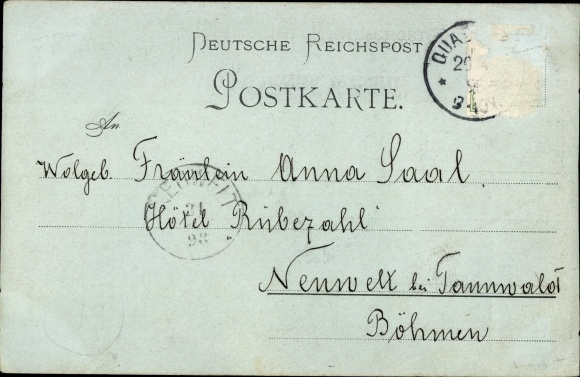 DEUTSCHE REICHSPOST
POSTKARTE.
An
Wolgeb. Fräulein Anna Saal
Hôtel "Rübezahl"
Neuwelt bei Tannwald
Böhmen
NEUWELT
21
98